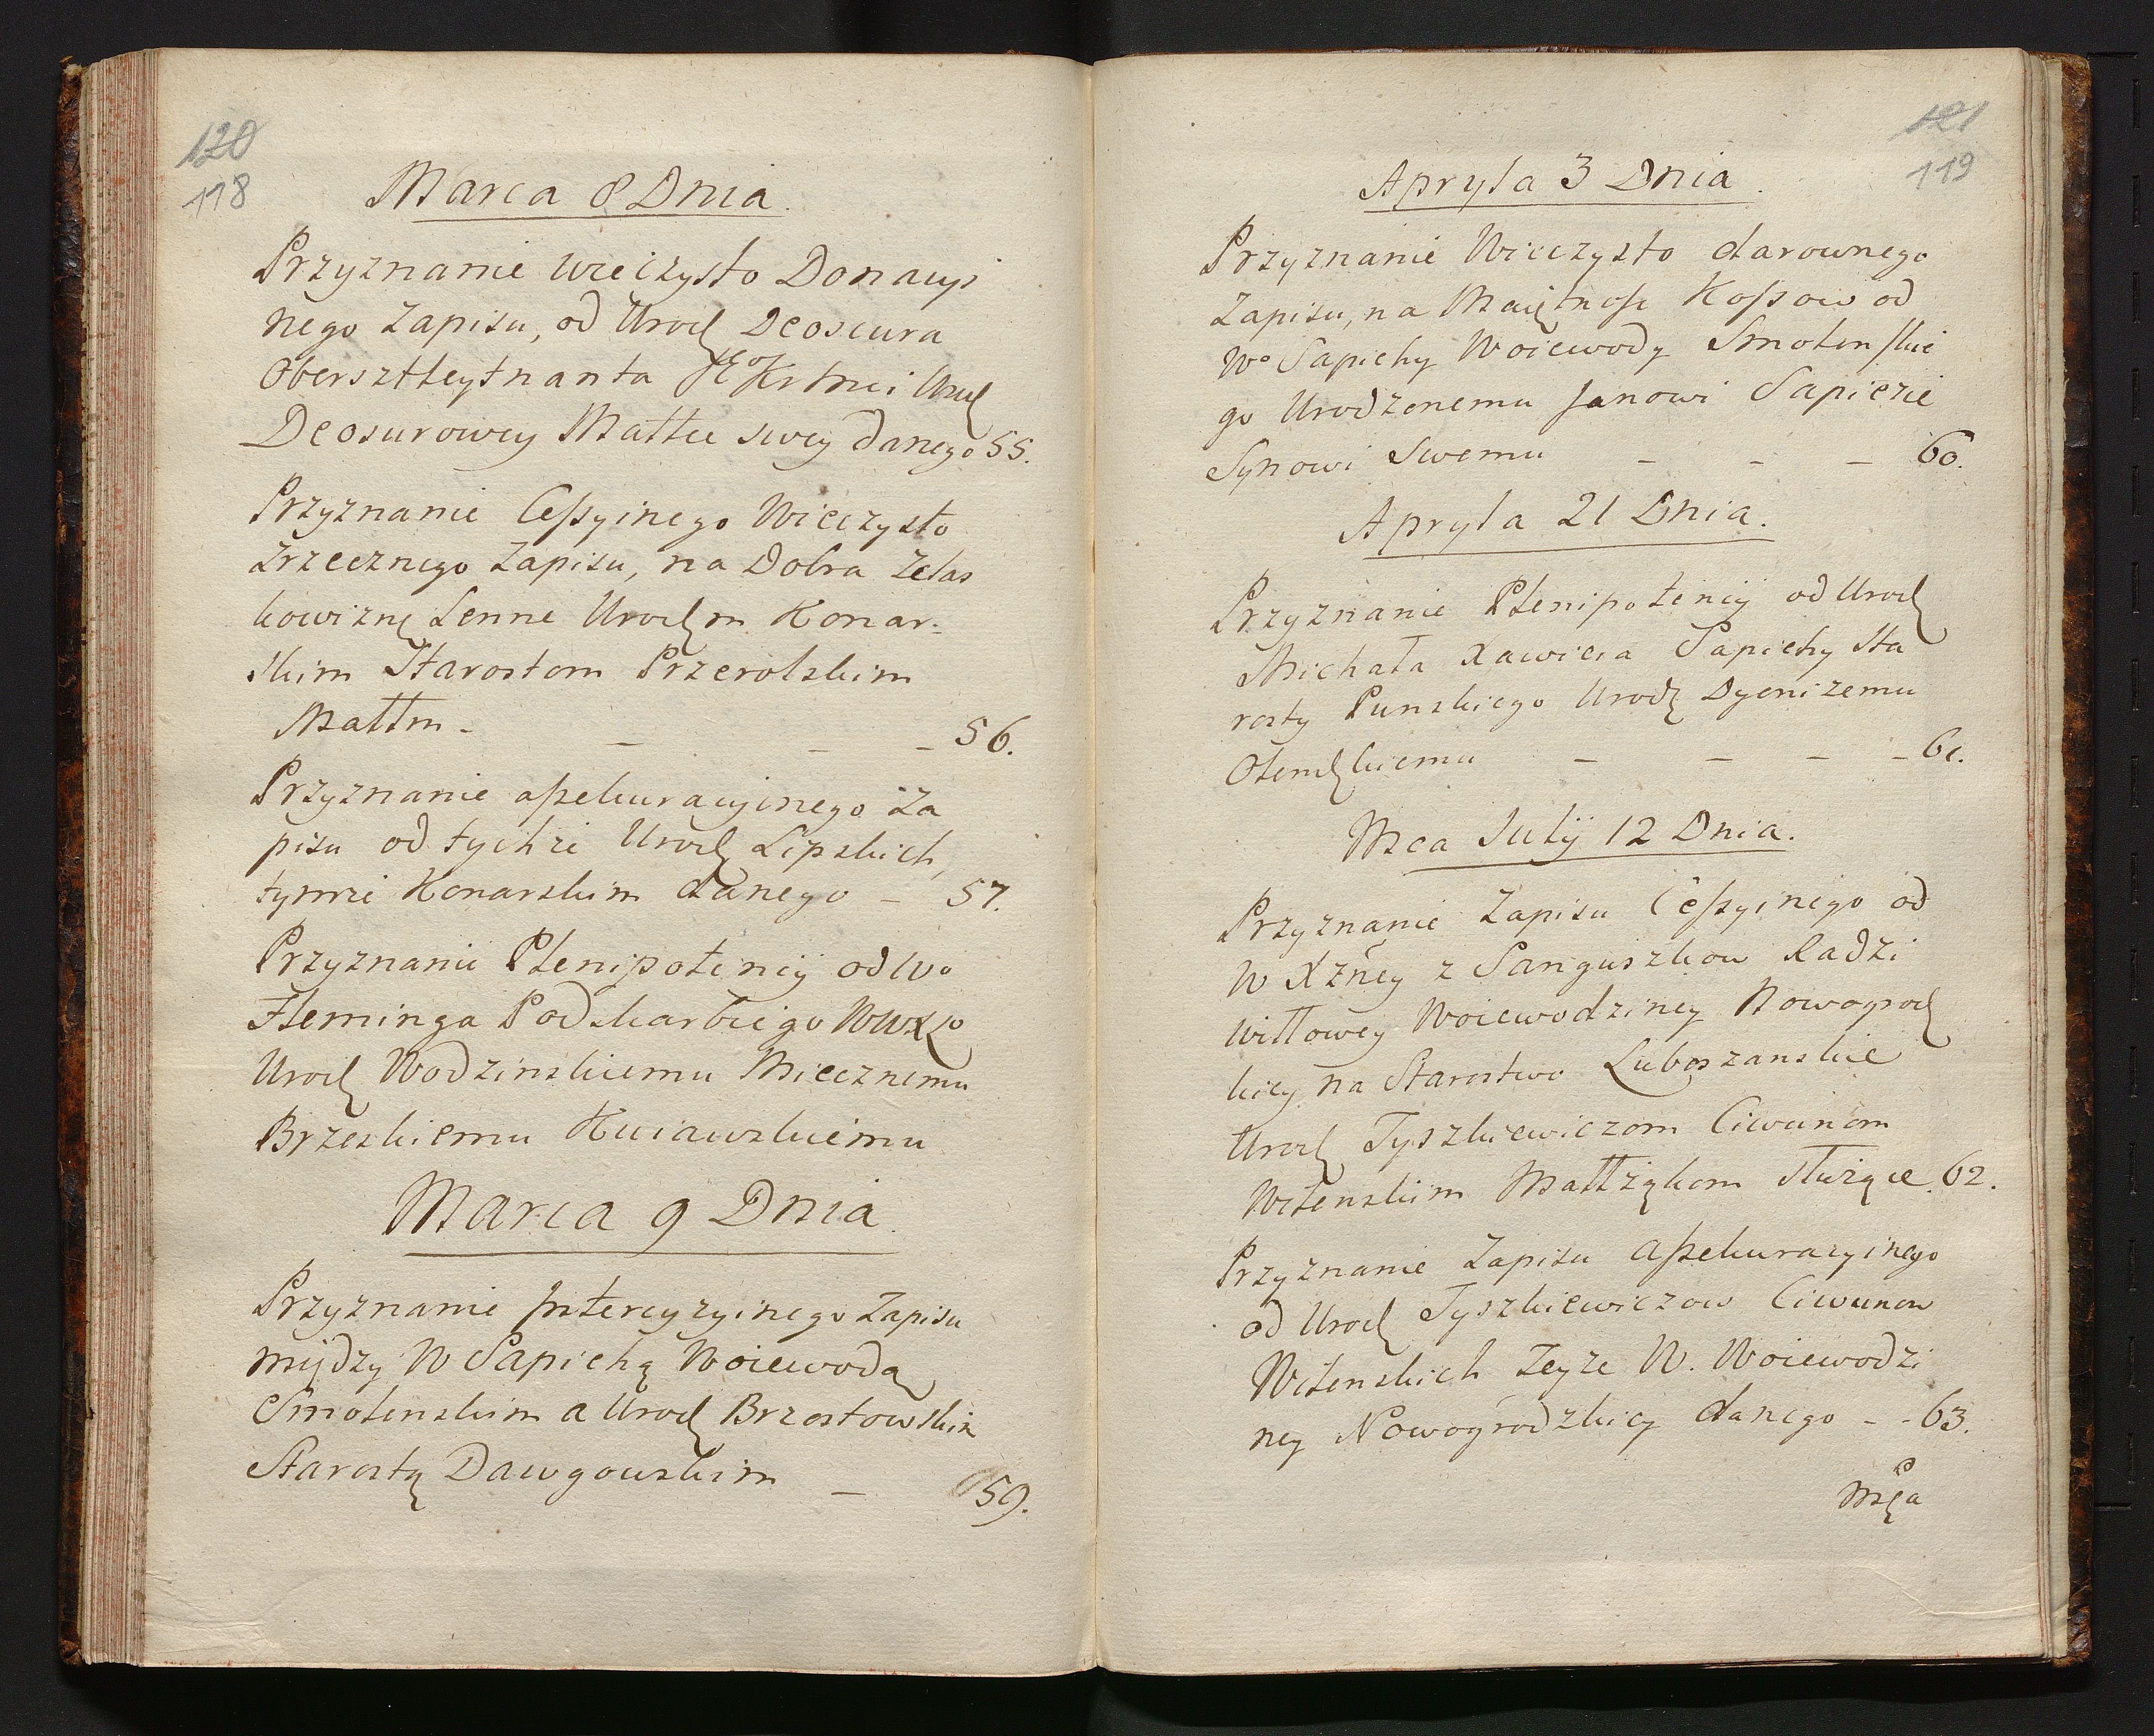 120
118
Marca 8 Dnia.
Przyznanie wieczysto Donacyi
nego Zapisu, od Urodz Deoscura
Obersztleytnanta JKMci Urodz
Deosurowey Matce swey danego 55.
Przyznanie Cessyinego Wieczysto
Zrzecznego Zapisu, na Dobra Zelas
kowiznę Lenne Urodzm Konar:
skim Starostom Przerolskim
Małłm - - - - 56.
Przyznanie assekuracyjnego Za
pisu od tychże Urodz Lipskich,
tymże Konarskim danego - 57.
Przyznanie Plenipotencij od Wo
Fleminga Podskarbiego WWXLo
Urodz Wodzinskiemu Miecznemu
Brzeskiemu Kuiawskiemu
Marca 9 Dnia.
Przyznanie Intercyzyinego Zapisu
między W Sapiehą Woiewodą
Smolenskim a Urodz Brzostowskim
Starostą Dawgowskim - 59.
121
119
Apryla 3 Dnia.
Przyznanie Wieczysto darownego
Zapisu, na Maiętnosc Kossow od
Wo Sapiehy Woiewody Smolenskie
go Urodzonemu Janowi Sapiezie
Synowi Swemu - - - 60.
Apryla 21 Dnia.
Przyznanie Plenipotencij od Urodz
Michała Xawiera Sapiehy Sta
rosty Punskiego Urodz Dyonizemu
Olendzkiemu - - - - 61.
Mca Julij 12 Dnia.
Przyznanie Zapisu Cessyinego od
W Xżney z Sanguszkow Radzi
wiłłowey Woiewodziney Nowogrodz
kiey na Starostwo Luboszanskie
Urodz Tyszkiewiczom Ciwunom
Wilenskim Małłżąkom służące 62.
Przyznanie Zapisu assekuracyinego
od Urodz Tyszkiewiczow Ciwunow
Wilenskich Teyże W. Woiewodzi
ney Nowogrodzkiey danego - - 63.
Msca